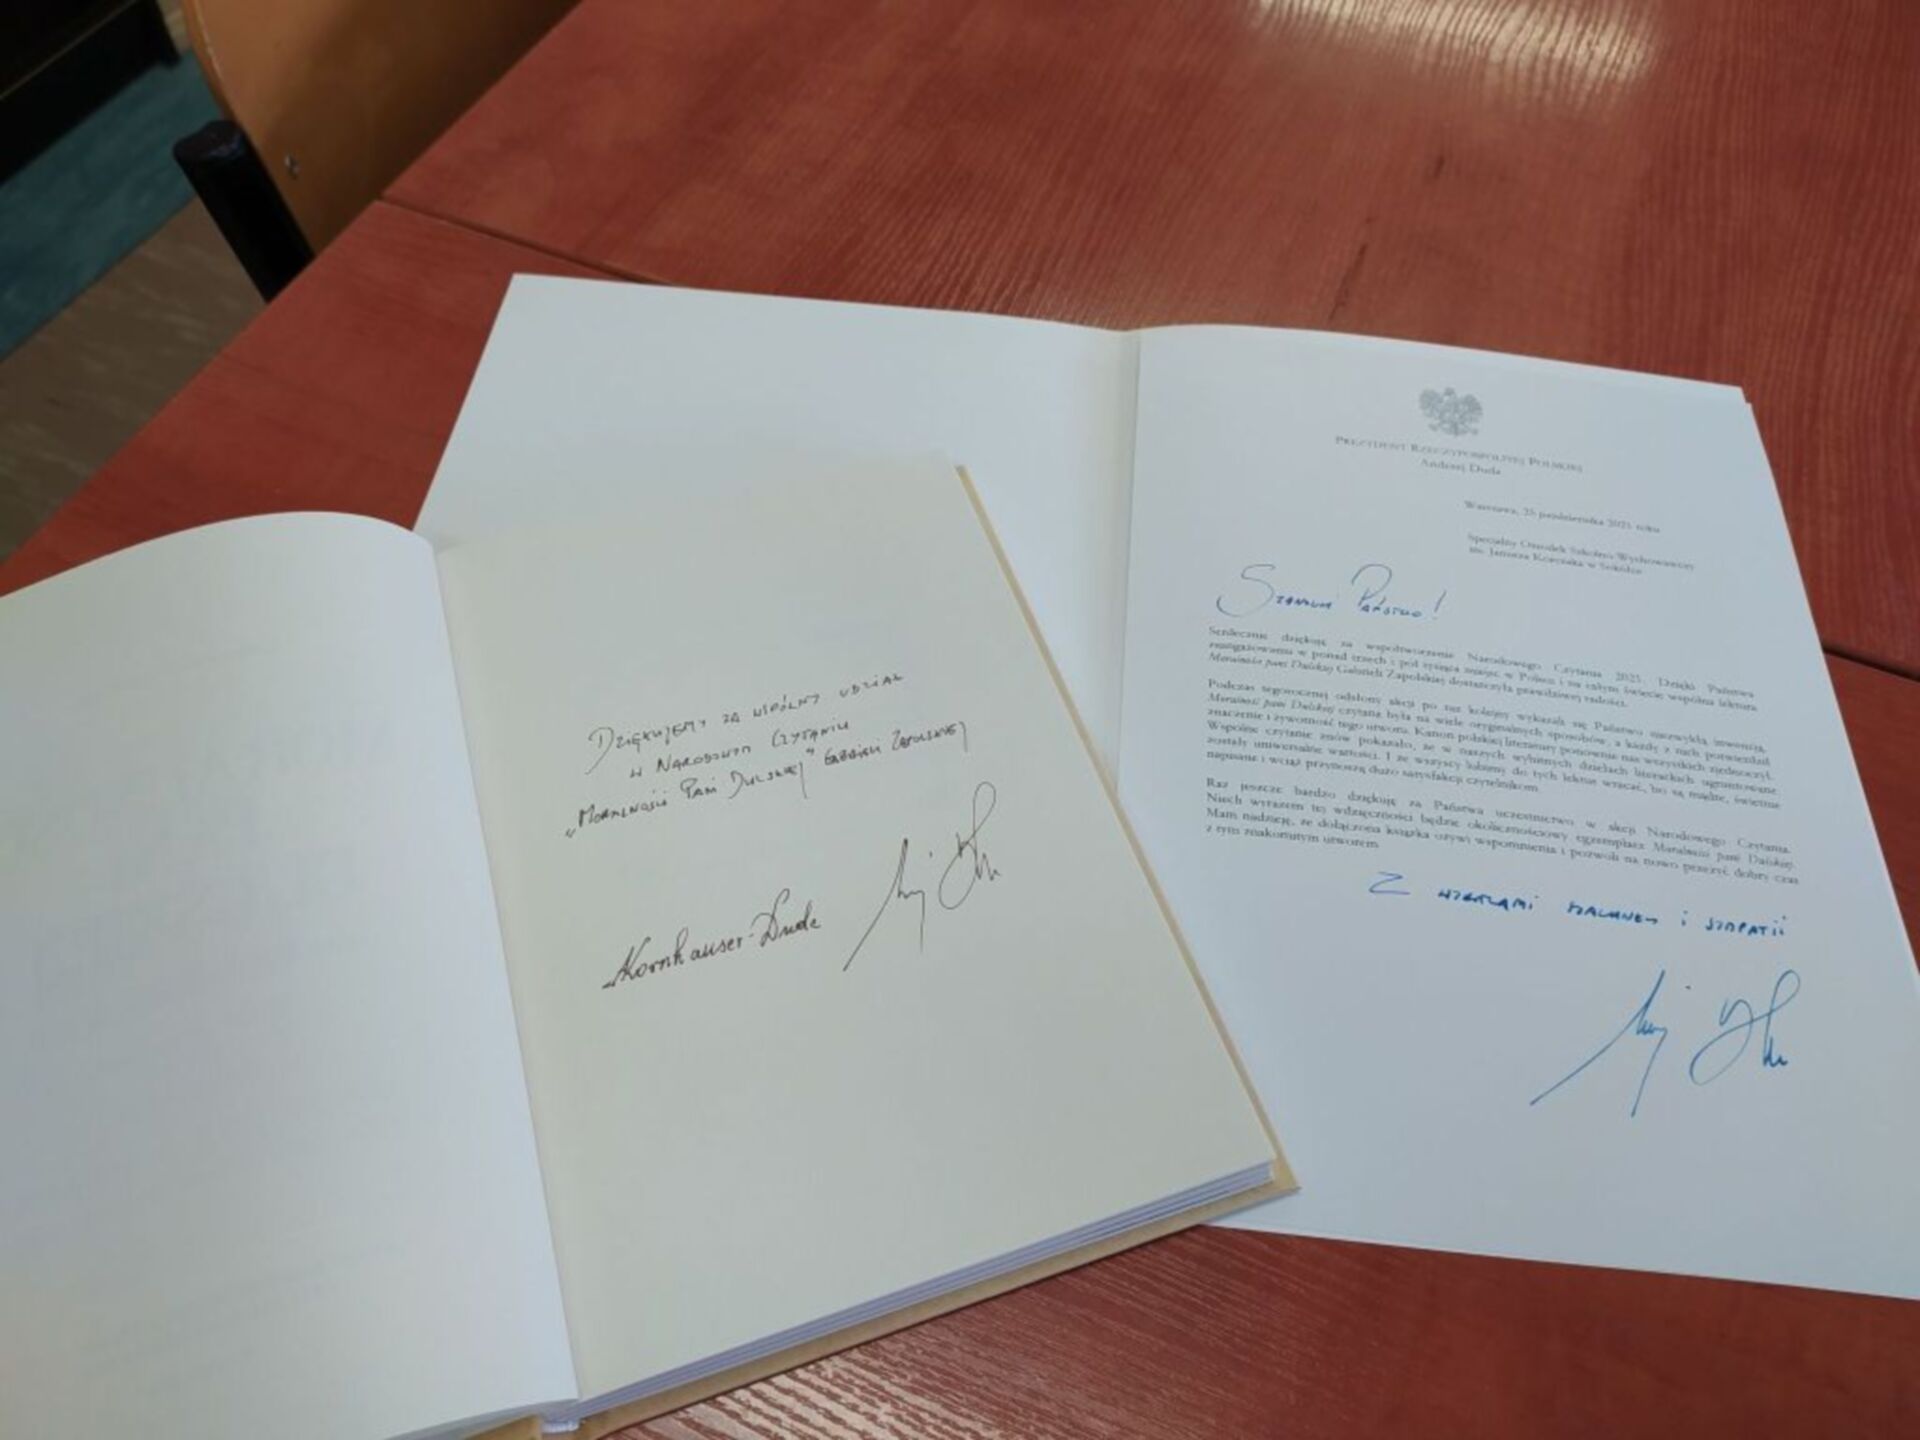 Dziękujemy za wspólny udział
w Narodowym Czytaniu
„Moralności Pani Dulskiej" Gabrieli Zapolskiej
AKornhauser-Duda
Prezydent Rzeczypospolitej Polskiej
Andrzej Duda
Warszawa, 25 października 2021 roku
Specjalny Ośrodek Szkolno-Wychowawczy
im. Janusza Korczaka w Sokółce
Szanowni Państwo!
Serdecznie dziękuję za współtworzenie Narodowego Czytania 2021. Dzięki Państwa
zaangażowaniu w ponad trzech i pół tysiąca miejsc w Polsce i na całym świecie wspólna lektura
Moralności pani Dulskiej Gabrieli Zapolskiej dostarczyła prawdziwej radości.
Podczas tegorocznej odsłony akcji po raz kolejny wykazali się Państwo niezwykłą inwencją.
Moralność pani Dulskiej czytana była na wiele oryginalnych sposobów, a każdy z nich potwierdził
znaczenie i żywotność tego utworu. Kanon polskiej literatury ponownie nas wszystkich zjednoczył.
Wspólne czytanie znów pokazało, że w naszych wybitnych dziełach literackich ugruntowane
zostały uniwersalne wartości. I że wszyscy lubimy do tych lektur wracać, bo są mądre, świetnie
napisane i wciąż przynoszą dużo satysfakcji czytelnikom.
Raz jeszcze bardzo dziękuję za Państwa uczestnictwo w akcji Narodowego Czytania.
Niech wyrazem tej wdzięczności będzie okolicznościowy egzemplarz Moralności pani Dulskiej.
Mam nadzieję, że dołączona książka ożywi wspomnienia i pozwoli na nowo przeżyć dobry czas
z tym znakomitym utworem.
Z wyrazami szacunku i sympatii